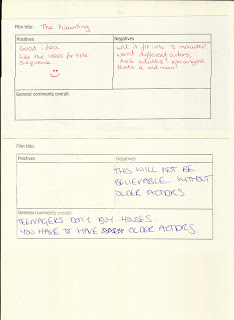 Film title: The haunting
Positives
Negatives
Good idea
Like the ideas for title
sequence.
will it fit into 2 minutes?
need different actors,
Ask adults!
that's a old man!
General comments overall:
Film title:
Positives
Negatives
THIS WILL NOT BE
BELIEVABLE WITHOUT
OLDER ACTORS
General comments overall:
TEENAGERS DON'T BUY HOUSES.
YOU HAVE TO HAVE OLDER ACTORS